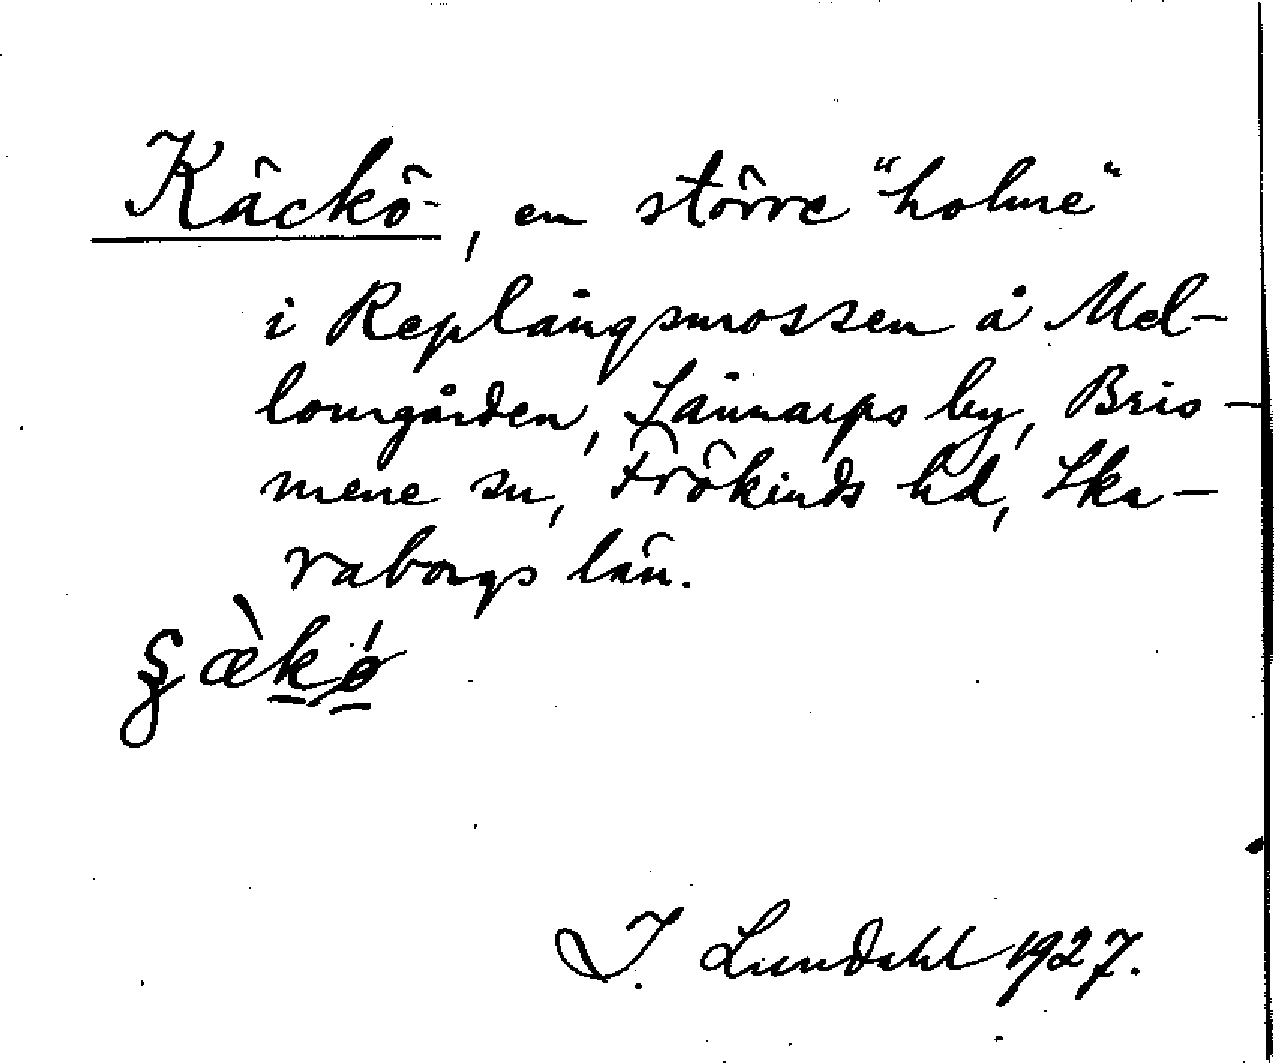 Käckö, en större "holme"
i Replångsmossen å Mel-
lomgården, Jännarps by, Bris-
mene sn, Frökinds hd, Ska-
raborgs län.
I. Lundahl 1927.